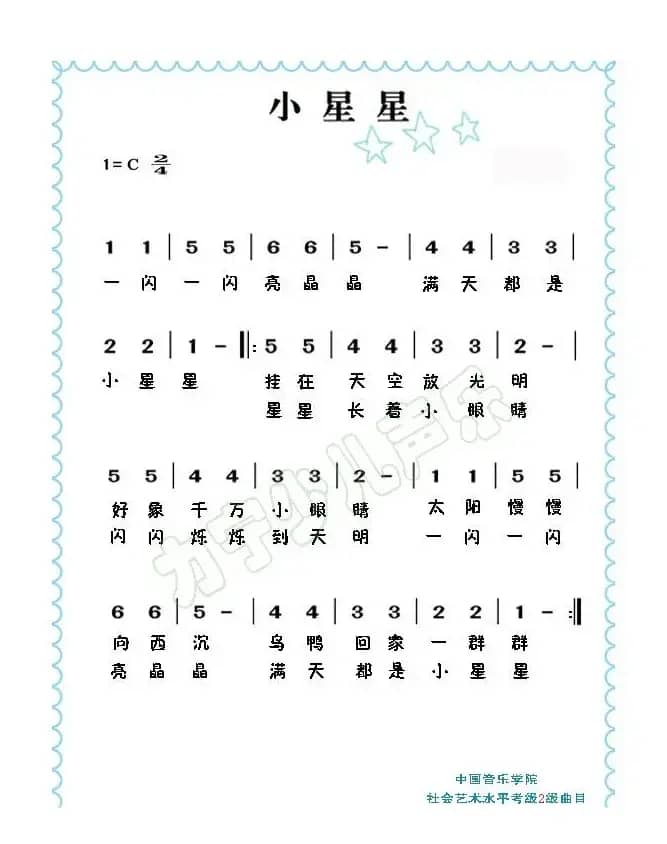 小星星
1=C 2/4
1 1 | 5 5 | 6 6 | 5 - | 4 4 | 3 3 |
一闪一闪亮晶晶 满天都是
2 2 | 1 - ‖: 5 5 | 4 4 | 3 3 | 2 - |
小星星 挂在天空放光明
星星长着小眼睛
5 5 | 4 4 | 3 3 | 2 - | 1 1 | 5 5 |
好象千万小眼睛 太阳慢慢
闪闪烁烁到天明 一闪一闪
6 6 | 5 - | 4 4 | 3 3 | 2 2 | 1 - :‖
向西沉 乌鸭回家一群群
亮晶晶 满天都是小星星
力宇少儿声乐
中国音乐学院
社会艺术水平考级2级曲目